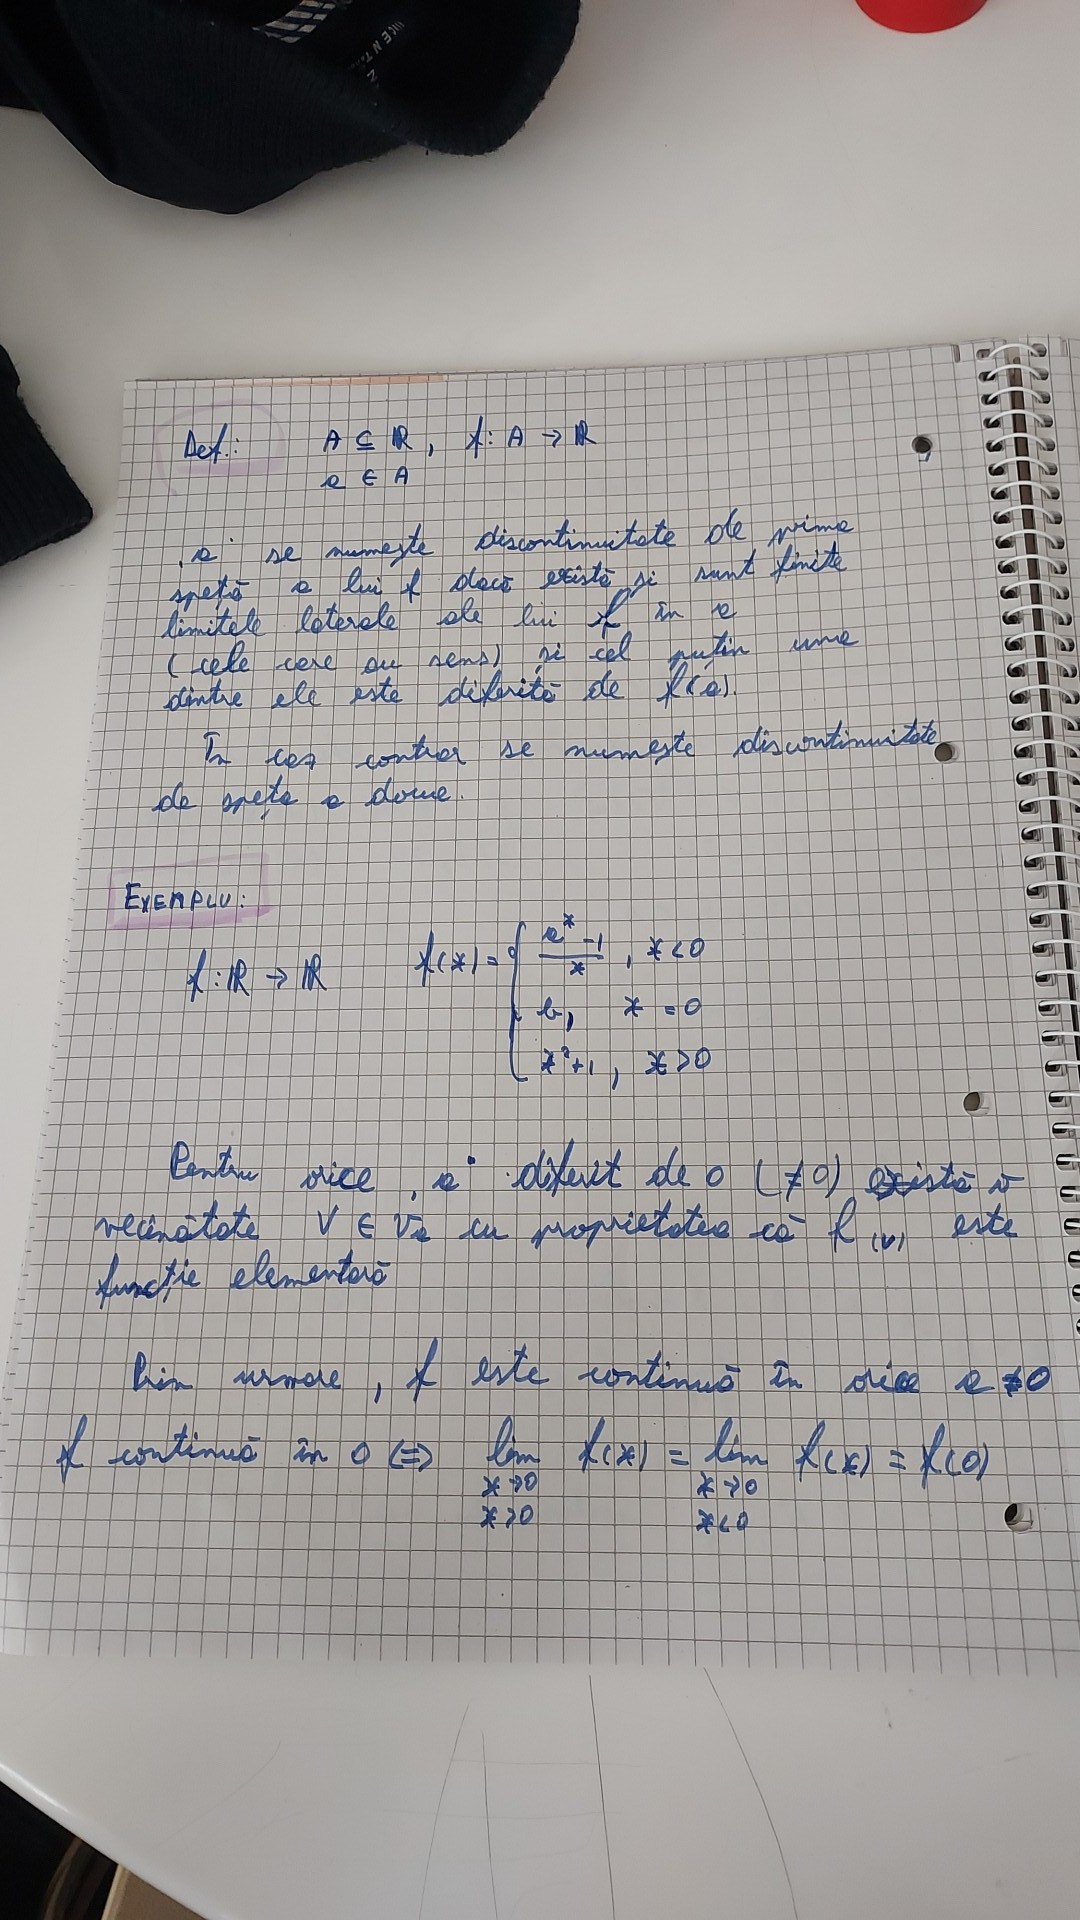 Def.: A ⊆ ℝ, f: A → ℝ
a ∈ A
„a" se numește discontinuitate de prima
speță a lui f dacă există și sunt finite
limitele laterale ale lui f în a
(cele care au sens) și cel puțin una
dintre ele este diferită de f(a).
În caz contrar se numește discontinuitate
de speța a doua.
EXEMPLU:
f: ℝ → ℝ f(x) = { (e^x - 1)/x , x < 0
b, x = 0
x² + 1, x > 0
Pentru orice „a" diferit de 0 (≠0) există o
vecinătate V ∈ Va cu proprietatea că f(v) este
funcție elementară
Prin urmare, f este continuă în orice a ≠ 0
f continuă în 0 (=) lim f(x) = lim f(x) = f(0)
x→0 x→0
x>0 x<0